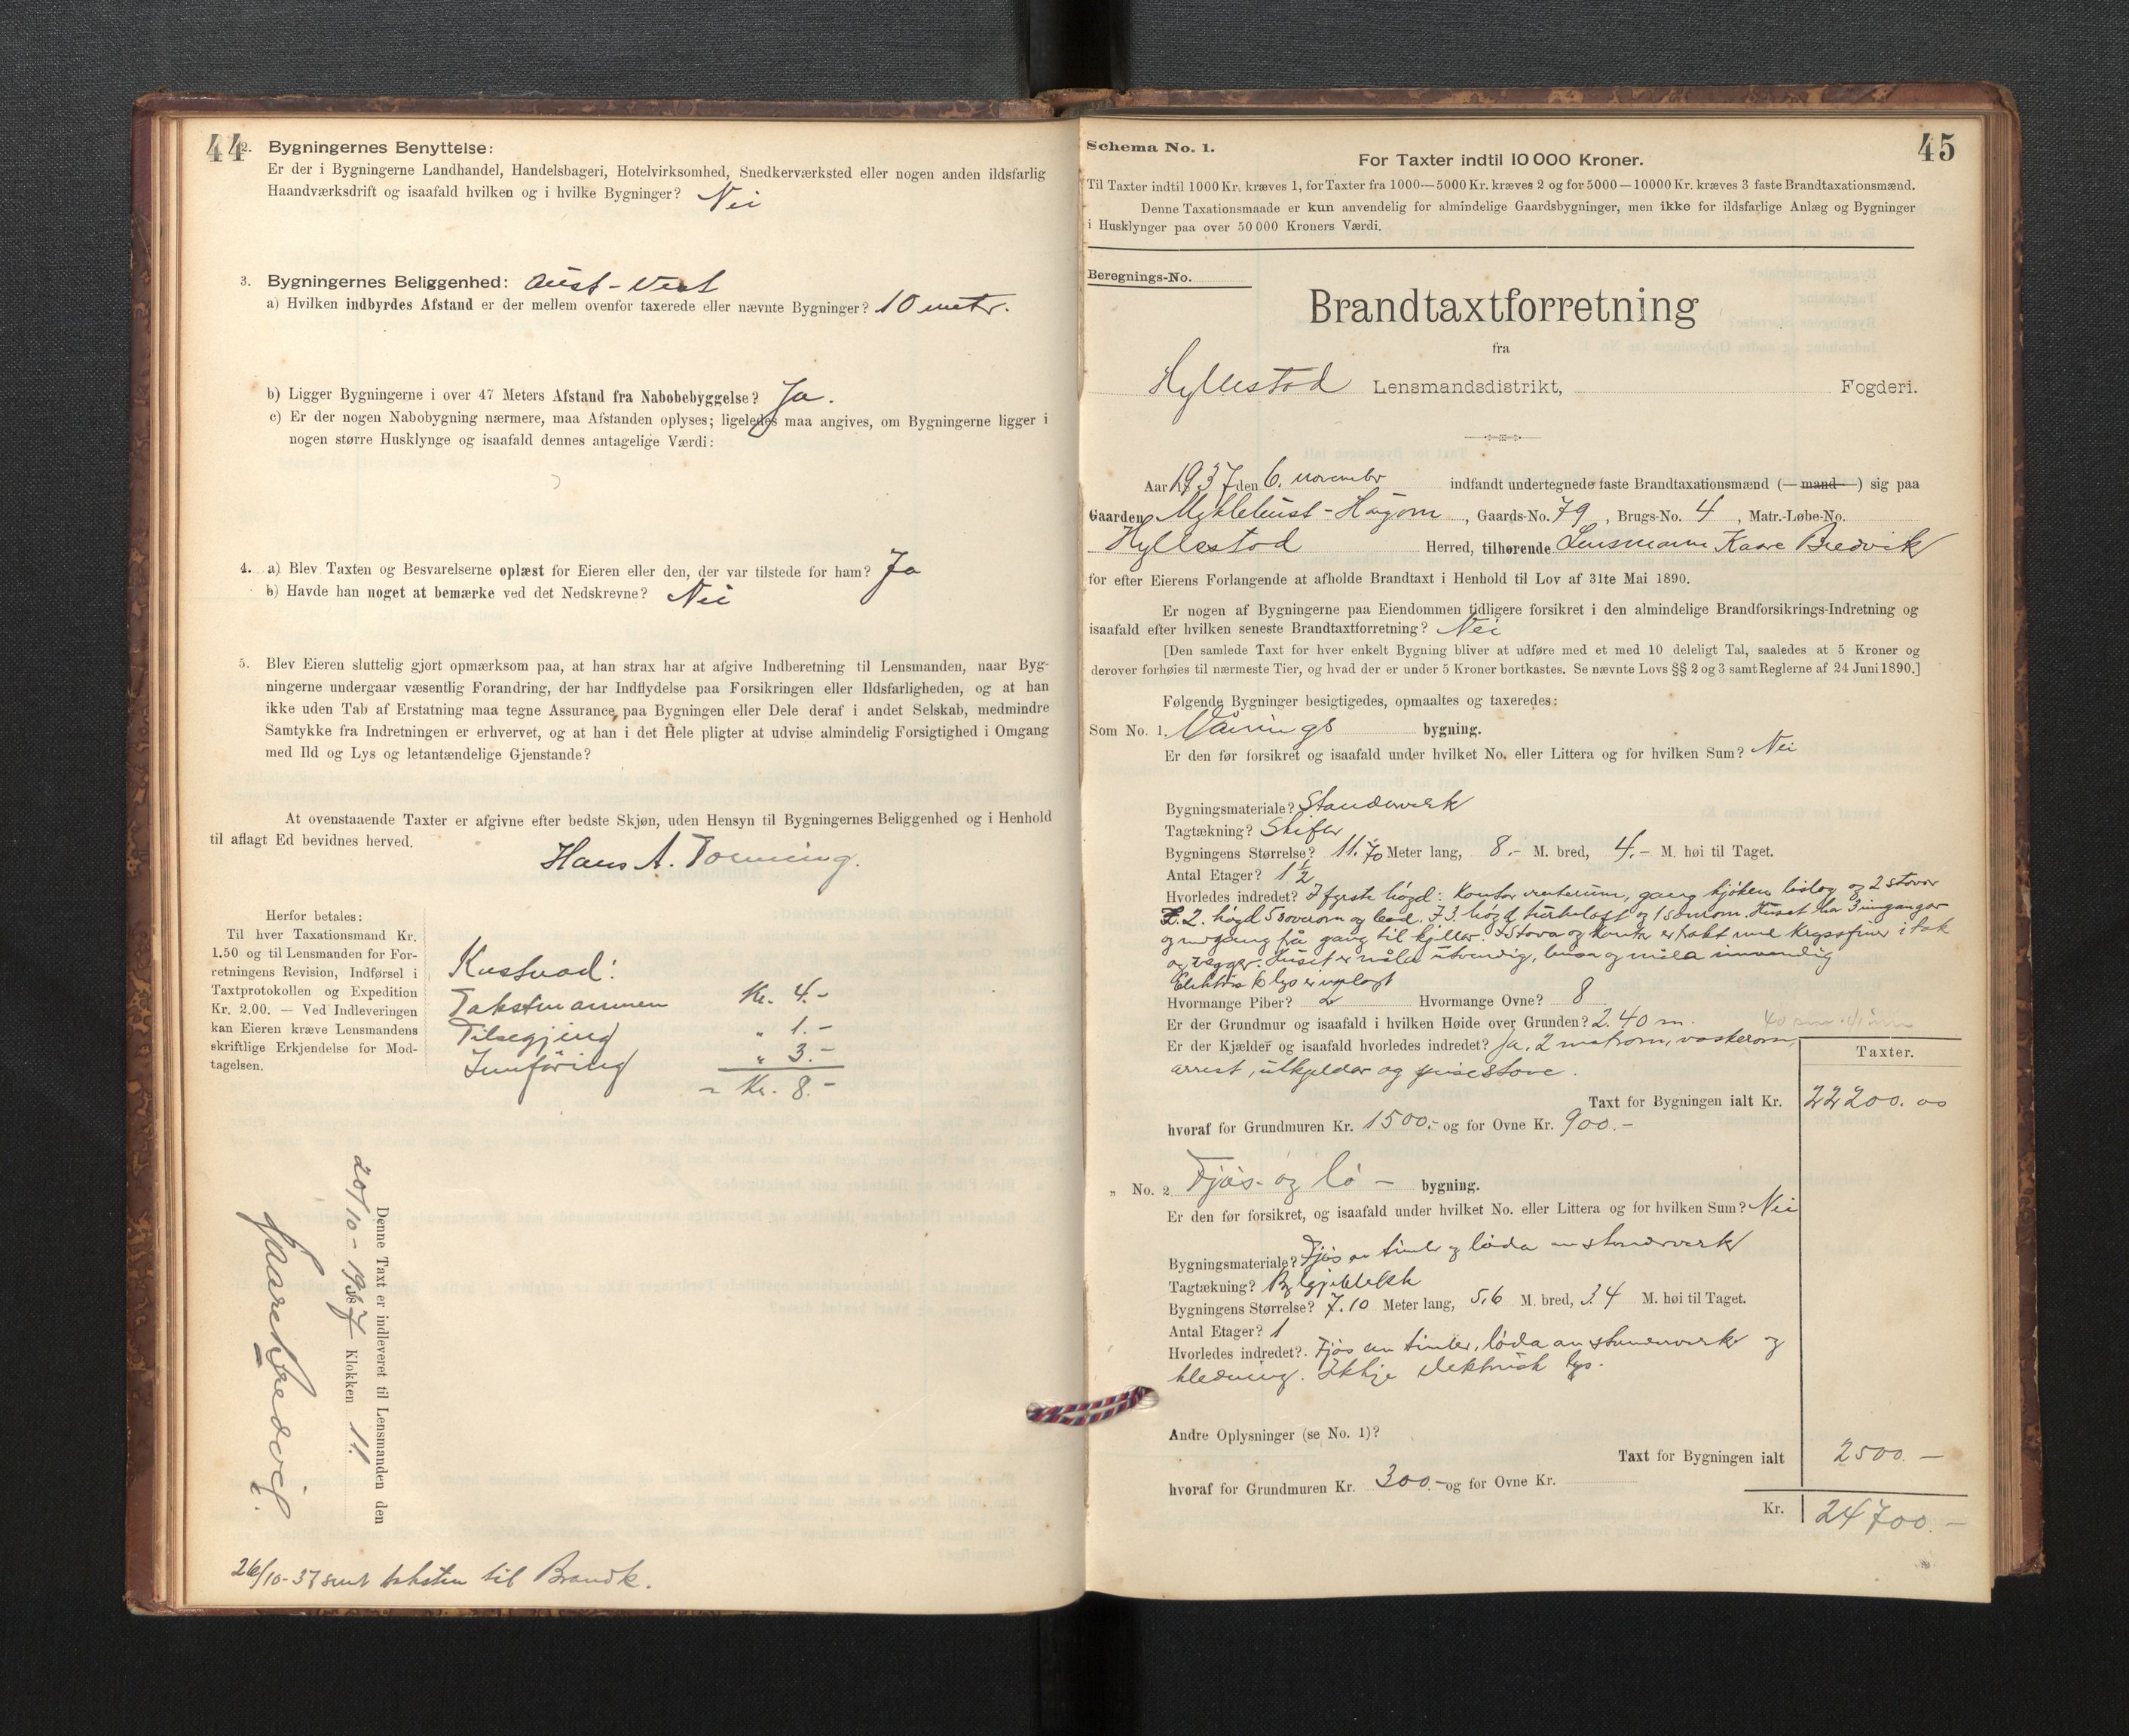 44
2. Bygningernes Benyttelse:
Er der i Bygningerne Landhandel, Handelsbageri, Hotelvirksomhed, Snedkerværksted eller nogen anden ildsfarlig
Haandværksdrift og isaafald hvilken og i hvilke Bygninger? Nei
3. Bygningernes Beliggenhed: Aust-Vest
a) Hvilken indbyrdes Afstand er der mellem ovenfor taxerede eller nævnte Bygninger? 10 metr.
b) Ligger Bygningerne i over 47 Meters Afstand fra Nabobebyggelse? Ja.
c) Er der nogen Nabobygning nærmere, maa Afstanden oplyses; ligeledes maa angives, om Bygningerne ligger i
nogen større Husklynge og isaafald dennes antagelige Værdi:
4. a) Blev Taxten og Besvarelserne oplæst for Eieren eller den, der var tilstede for ham? Ja
b) Havde han noget at bemærke ved det Nedskrevne? Nei
5. Blev Eieren sluttelig gjort opmærksom paa, at han strax har at afgive Indberetning til Lensmanden, naar Byg-
ningerne undergaar væsentlig Forandring, der har Indflydelse paa Forsikringen eller Ildsfarligheden, og at han
ikke uden Tab af Erstatning maa tegne Assurance paa Bygningen eller Dele deraf i andet Selskab, medmindre
Samtykke fra Indretningen er erhvervet, og at han i det Hele pligter at udvise almindelig Forsigtighed i Omgang
med Ild og Lys og letantændelige Gjenstande?
At ovenstaaende Taxter er afgivne efter bedste Skjøn, uden Hensyn til Bygningernes Beliggenhed og i Henhold
til aflagt Ed bevidnes herved.
Hans A.
Herfor betales:
Til hver Taxationsmand Kr.
1.50 og til Lensmanden for For-
retningens Revision, Indførsel i
Taxtprotokollen og Expedition
Kr. 2.00. — Ved Indleveringen
kan Eieren kræve Lensmandens
skriftlige Erkjendelse for Mod-
tagelsen.
Kostnad:
Takstmannen Kr. 4.-
Tilsegjing " 1.-
Innføring " 3.-
= Kr. 8.-
Denne Taxt er indleveret til Lensmanden den
20/10-1937 Klokken 11.
Kaare Bredvik.
26/10-37 sent taksten til Brandk.
45
Schema No. 1.
For Taxter indtil 10 000 Kroner.
Til Taxter indtil 1000 Kr. kræves 1, for Taxter fra 1000—5000 Kr. kræves 2 og for 5000—10000 Kr. kræves 3 faste Brandtaxationsmænd.
Denne Taxationsmaade er kun anvendelig for almindelige Gaardsbygninger, men ikke for ildsfarlige Anlæg og Bygninger
i Husklynger paa over 50 000 Kroners Værdi.
Beregnings-No.
Brandtaxtforretning
fra
Hyllestad Lensmandsdistrikt, Fogderi.
Aar 1937 den 6. november indfandt undertegnede faste Brandtaxationsmænd (—mand—) sig paa
Gaarden Myklebust-Haugom, Gaards-No. 79, Brugs-No. 4, Matr.-Løbe-No.
Hyllestad Herred, tilhørende Lensmann Kaare Bredvik
for efter Eierens Forlangende at afholde Brandtaxt i Henhold til Lov af 31te Mai 1890.
Er nogen af Bygningerne paa Eiendommen tidligere forsikret i den almindelige Brandforsikrings-Indretning og
isaafald efter hvilken seneste Brandtaxtforretning? Nei
[Den samlede Taxt for hver enkelt Bygning bliver at udføre med et med 10 deleligt Tal, saaledes at 5 Kroner og
derover forhøies til nærmeste Tier, og hvad der er under 5 Kroner bortkastes. Se nævnte Lovs §§ 2 og 3 samt Reglerne af 24 Juni 1890.]
Følgende Bygninger besigtigedes, opmaaltes og taxeredes:
Som No. 1. Vånings bygning.
Er den før forsikret og isaafald under hvilket No. eller Littera og for hvilken Sum? Nei
Bygningsmateriale? Standerverk
Tagtækning? Skifer
Bygningens Størrelse? 11.70 Meter lang, 8.- M. bred, 4.- M. høi til Taget.
Antal Etager? 1½
Hvorledes indredet? I fyrste høgd: Kontor venterum, gang kjøken bislag og 2 stover
I 2. høgd 5 soverom og bad. I 3. høgd turkeloft og 1 somrom. Huset har 3 inngangar
og nedgang frå gang til kjellar. Stova og kontor er trekt med kryssfiner i tak
og vegger. Huset er måla utvendig, beisa og måla innvendig
Elektrisk lys er innlagt
Hvormange Piber? 2 Hvormange Ovne? 8
Er der Grundmur og isaafald i hvilken Høide over Grunden? 2.40 m.
Er der Kjælder og isaafald hvorledes indredet? Ja, 2 matrom, vaskerom,
arrest, utkjeldar og peisestove.
Taxter.
Taxt for Bygningen ialt Kr. 22200.00
hvoraf for Grundmuren Kr. 1500.- og for Ovne Kr. 900.-
„ No. 2 Fjøs- og lø- bygning.
Er den før forsikret, og isaafald under hvilket No. eller Littera og for hvilken Sum? Nei
Bygningsmateriale? Fjøs av timber og løda av standerverk
Tagtækning? Bylgjeblekk
Bygningens Størrelse? 7.10 Meter lang, 5,6 M. bred, 3.4 M. høi til Taget.
Antal Etager? 1
Hvorledes indredet? Fjøs av timber, løda av standerverk og
kledning. Ikkje elektrisk lys.
Andre Oplysninger (se No. 1)?
Taxt for Bygningen ialt 2500.-
hvoraf for Grundmuren Kr. 300.- og for Ovne Kr.
Kr. 24700.-